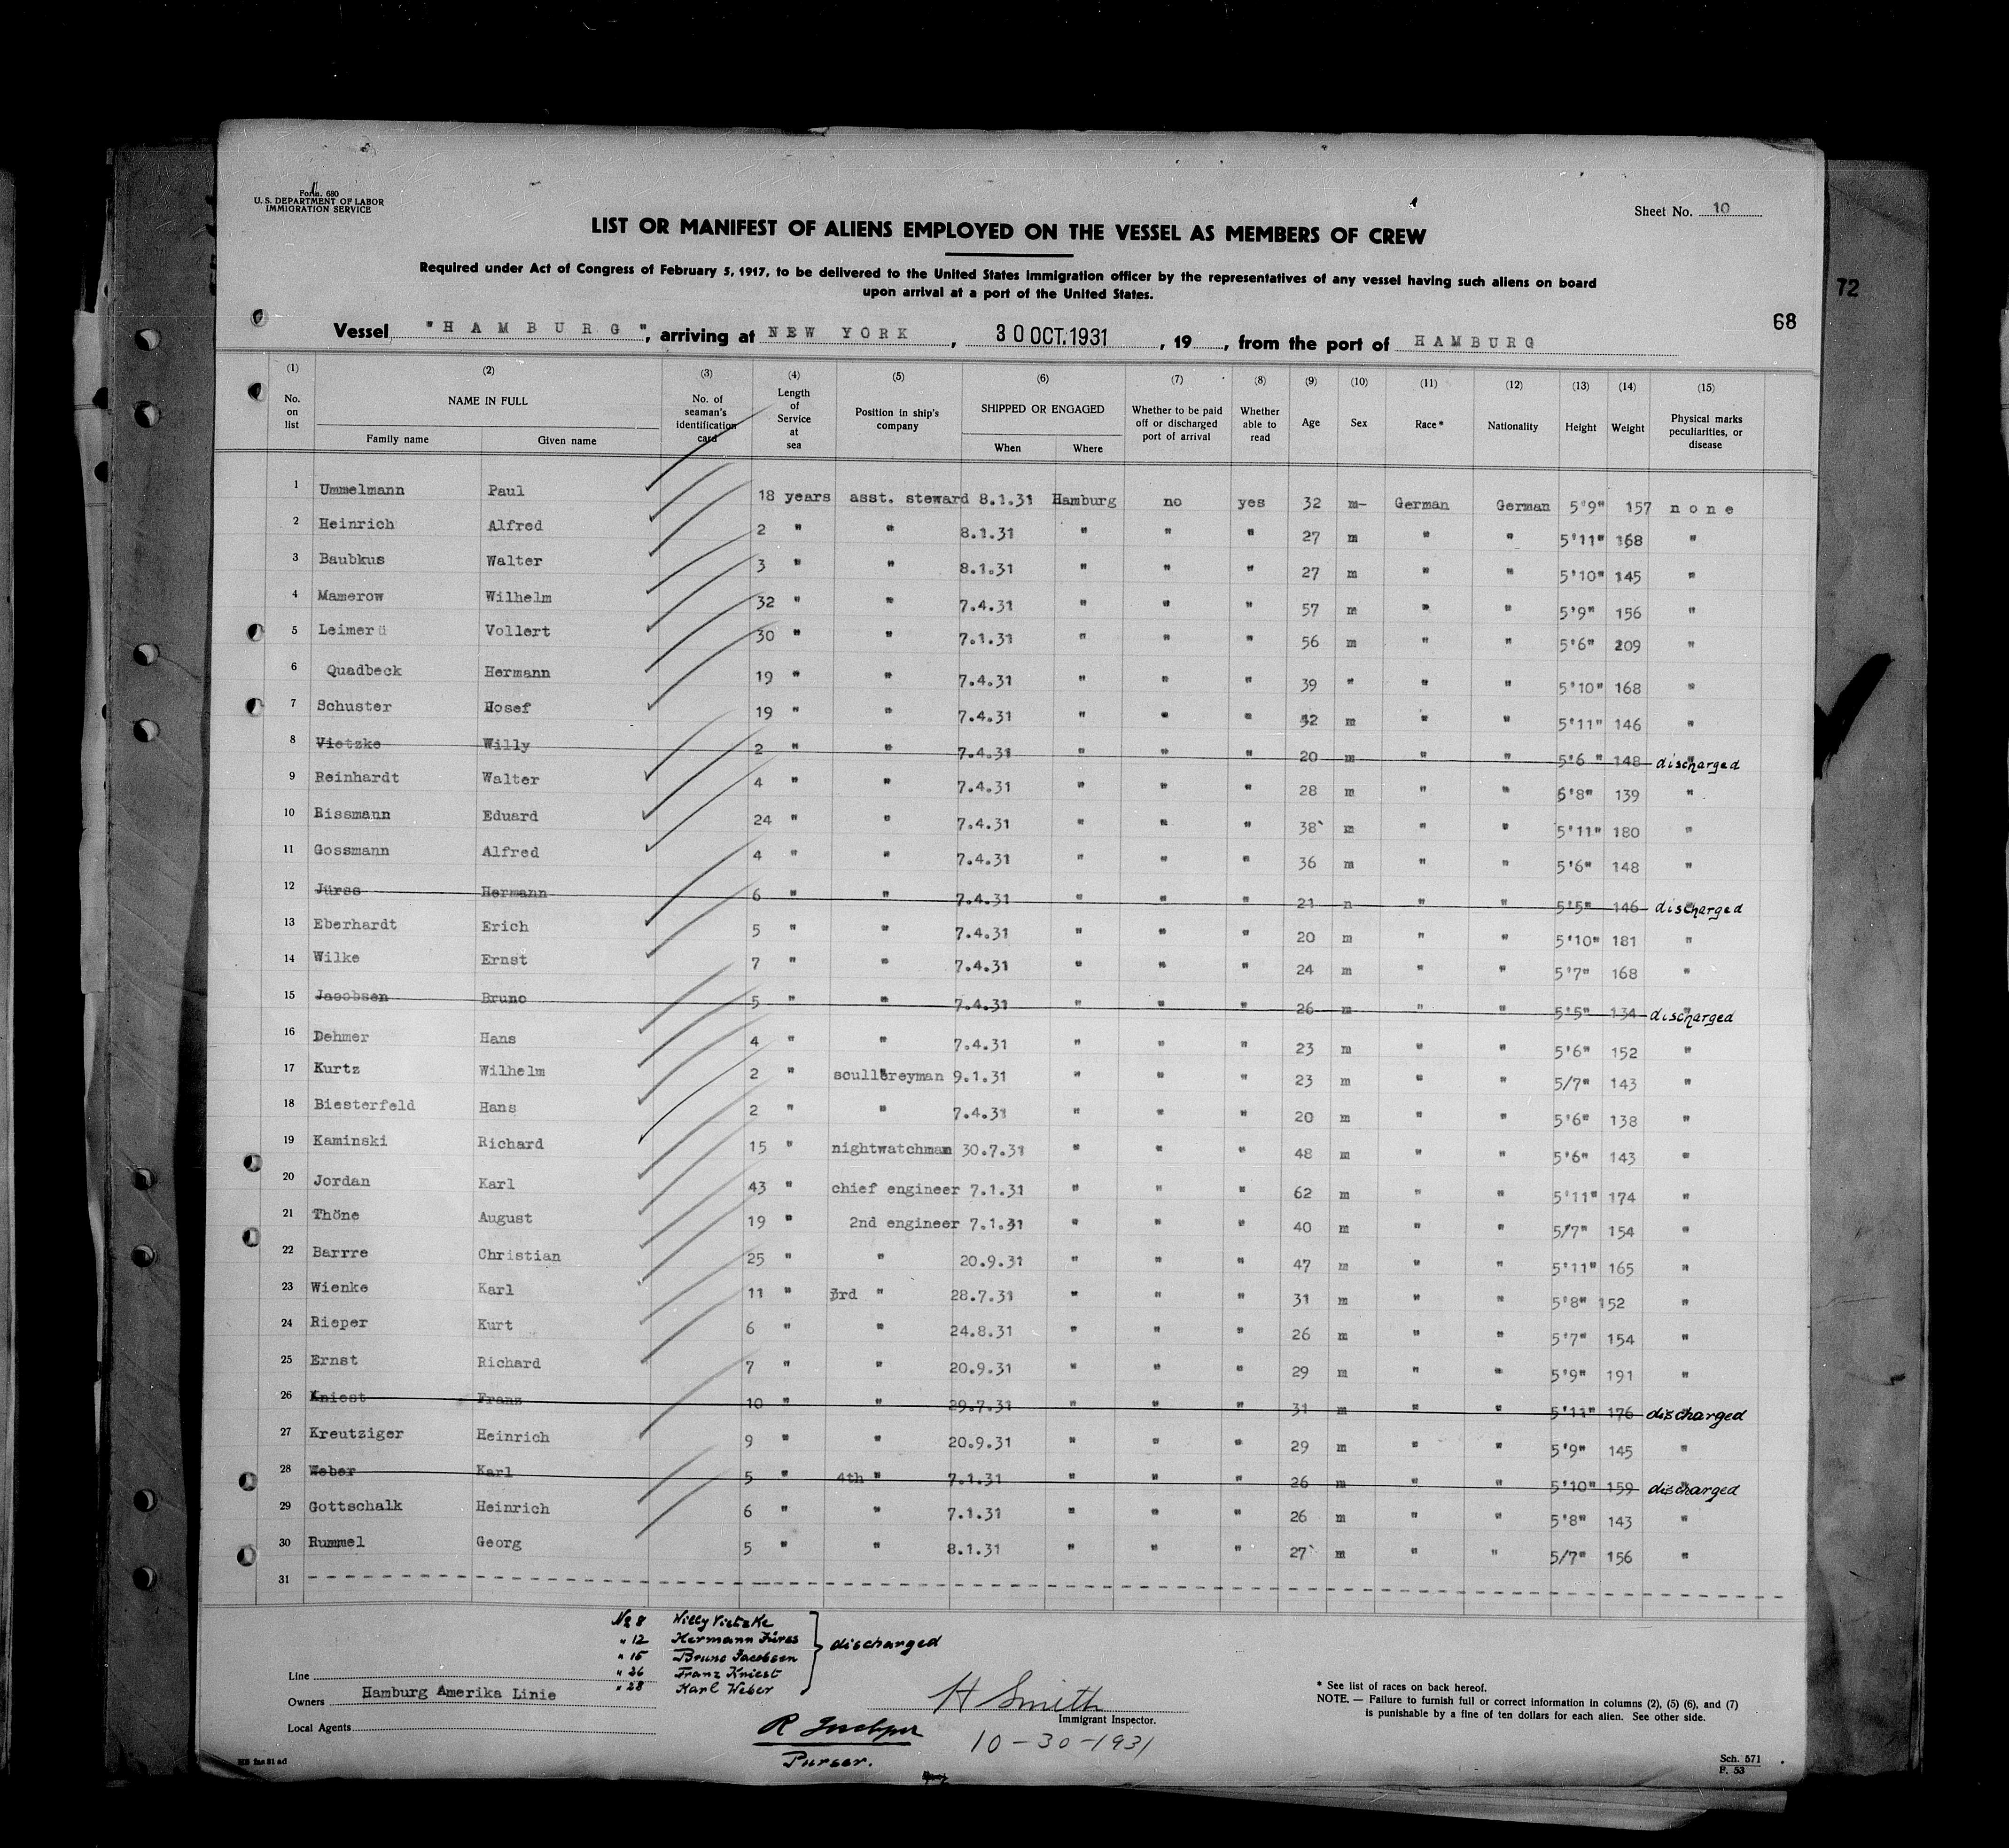 Form 680
U. S. DEPARTMENT OF LABOR
IMMIGRATION SERVICE
Sheet No. 10
LIST OR MANIFEST OF ALIENS EMPLOYED ON THE VESSEL AS MEMBERS OF CREW
Required under Act of Congress of February 5, 1917, to be delivered to the United States immigration officer by the representatives of any vessel having such aliens on board
upon arrival at a port of the United States.
72
68
Vessel "HAMBURG", arriving at NEW YORK, 30 OCT. 1931, 19, from the port of HAMBURG
(1) (2) (3) (4) (5) (6) (7) (8) (9) (10) (11) (12) (13) (14) (15)
No. on list NAME IN FULL Family name Given name No. of seaman's identification card Length of Service at sea Position in ship's company SHIPPED OR ENGAGED When Where Whether to be paid off or discharged port of arrival Whether able to read Age Sex Race* Nationality Height Weight Physical marks peculiarities, or disease
1 Ummelmann Paul 18 years asst. steward 8.1.31 Hamburg no yes 32 m- German German 5'9" 157 none
2 Heinrich Alfred 2 " " 8.1.31 " " " 27 m " " 5'11" 168 "
3 Baubkus Walter 3 " " 8.1.31 " " " 27 m " " 5'10" 145 "
4 Mamerow Wilhelm 32 " " 7.4.31 " " " 57 m " " 5'9" 156 "
5 Leimerü Vollert 30 " " 7.1.31 " " " 56 m " " 5'6" 209 "
6 Quadbeck Hermann 19 " " 7.4.31 " " " 39 " " " 5'10" 168 "
7 Schuster Hosef 19 " " 7.4.31 " " " 42 m " " 5'11" 146 "
8 Vietzke Willy 2 " " 7.4.31 " " " 20 m " " 5'6 " 148 " discharged
9 Reinhardt Walter 4 " " 7.4.31 " " " 28 m " " 5'8" 139 "
10 Rissmann Eduard 24 " " 7.4.31 " " " 38 m " " 5'11" 180 "
11 Gossmann Alfred 4 " " 7.4.31 " " " 36 m " " 5'6" 148 "
12 Jürss Hermann 6 " " 7.4.31 " " " 21 m " " 5'5" 146 " discharged
13 Eberhardt Erich 5 " " 7.4.31 " " " 20 m " " 5'10" 181 "
14 Wilke Ernst 7 " " 7.4.31 " " " 24 m " " 5'7" 168 "
15 Jacobsen Bruno 5 " " 7.4.31 " " " 26 m " " 5'5" 134 " discharged
16 Dehmer Hans 4 " " 7.4.31 " " " 23 m " " 5'6" 152 "
17 Kurtz Wilhelm 2 " scullereyman 9.1.31 " " " 23 m " " 5/7" 143 "
18 Biesterfeld Hans 2 " " 7.4.31 " " " 20 m " " 5'6" 138 "
19 Kaminski Richard 15 " nightwatchman 30.7.31 " " " 48 m " " 5'6" 143 "
20 Jordan Karl 43 " chief engineer 7.1.31 " " " 62 m " " 5'11" 174 "
21 Thöne August 19 " 2nd engineer 7.1.31 " " " 40 m " " 5/7" 154 "
22 Barrre Christian 25 " " 20.9.31 " " " 47 m " " 5'11" 165 "
23 Wienke Karl 11 " 3rd " 28.7.31 " " " 31 m " " 5'8" 152 "
24 Rieper Kurt 6 " " 24.8.31 " " " 26 m " " 5'7" 154 "
25 Ernst Richard 7 " " 20.9.31 " " " 29 m " " 5'9" 191 "
26 Kniest Franz 10 " " 29.7.31 " " " 31 m " " 5'11" 176 " discharged
27 Kreutziger Heinrich 9 " " 20.9.31 " " " 29 m " " 5'9" 145 "
28 Weber Karl 5 " 4th " 7.1.31 " " " 26 m " " 5'10" 159 " discharged
29 Gottschalk Heinrich 6 " " 7.1.31 " " " 26 m " " 5'8" 143 "
30 Rummel Georg 5 " " 8.1.31 " " " 27 m " " 5/7" 156 "
31
No 8 Willy Vietzke
" 12 Hermann Jürss
" 15 Bruno Jacobsen
" 26 Franz Kniest
" 28 Karl Weber
discharged
Line
Owners Hamburg Amerika Linie
Local Agents
H Smith
Immigrant Inspector.
10-30-1931
R
Purser.
* See list of races on back hereof.
NOTE. — Failure to furnish full or correct information in columns (2), (5) (6), and (7)
is punishable by a fine of ten dollars for each alien. See other side.
Sch. 571
F. 53